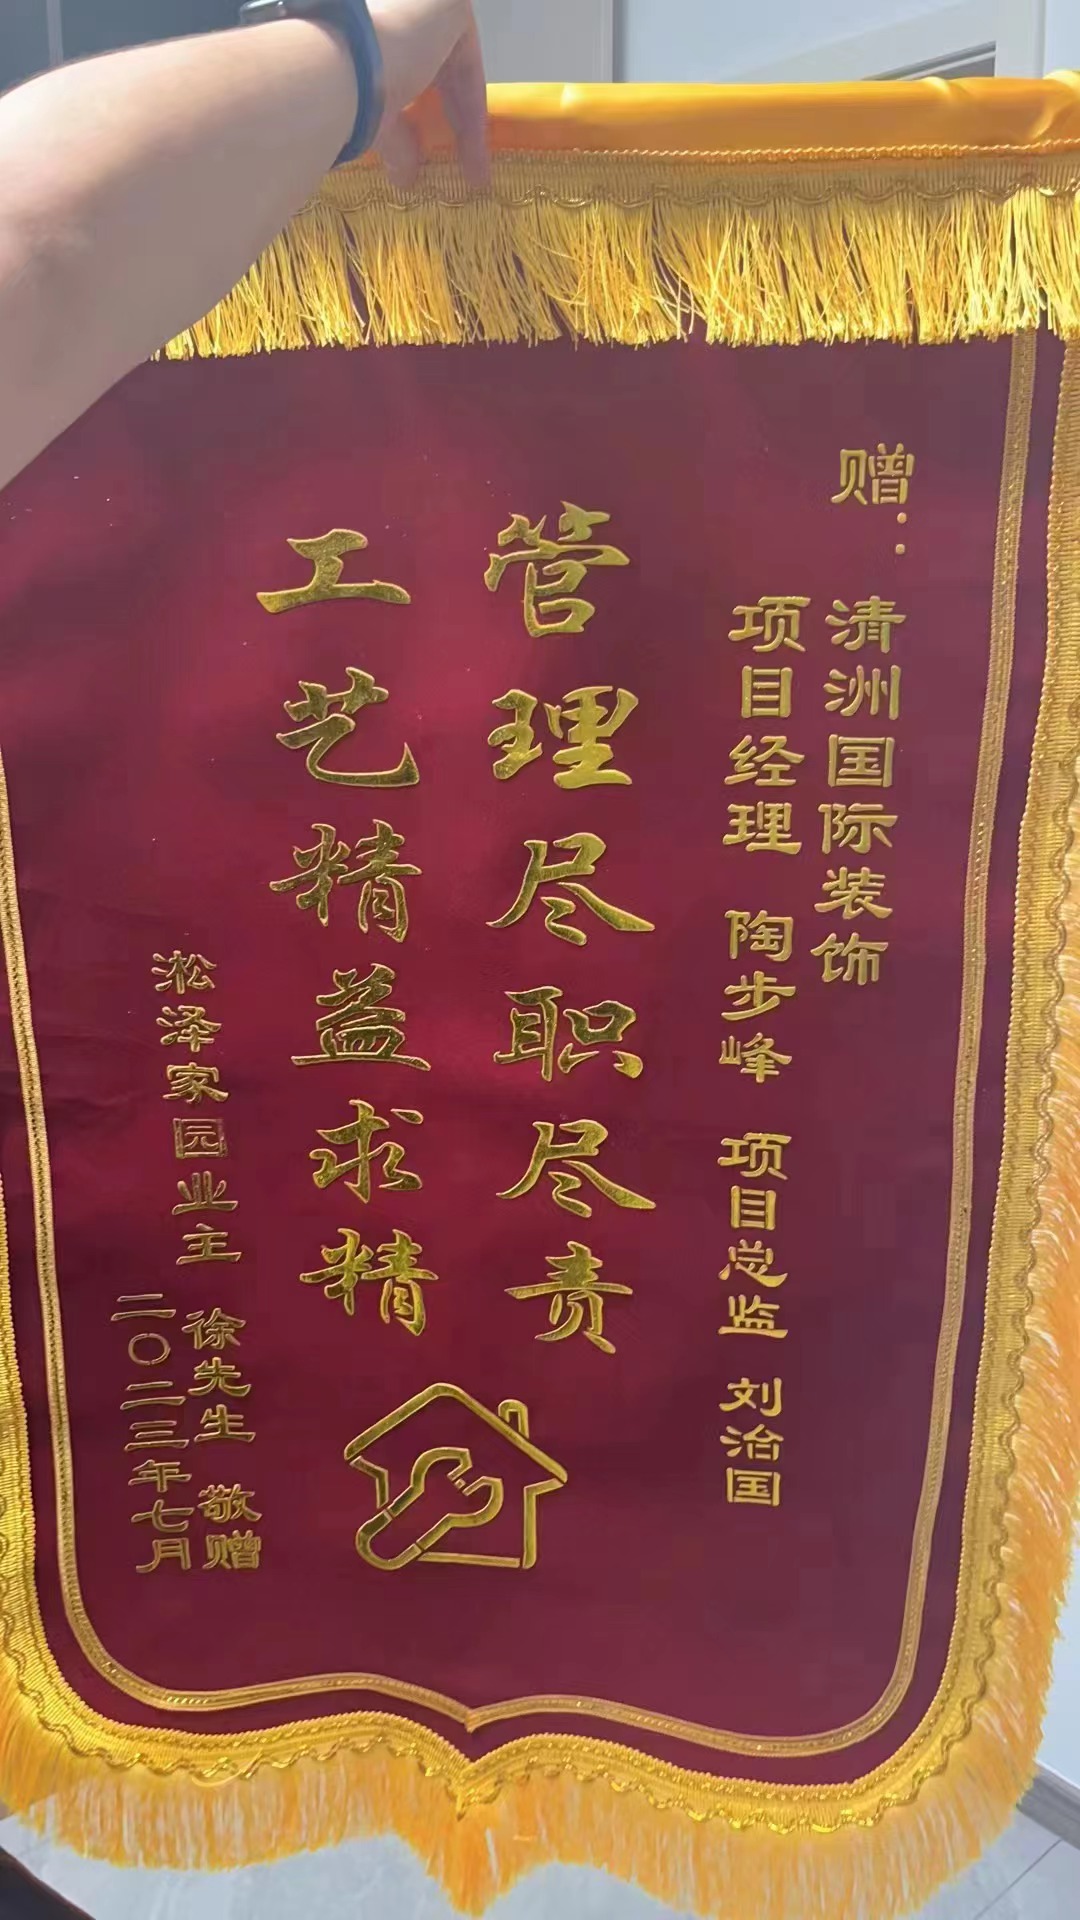 赠：
清洲国际装饰
项目经理 陶步峰 项目总监 刘治国
管理尽职尽责
工艺精益求精
淞泽家园业主 徐先生 敬赠
二〇二三年七月